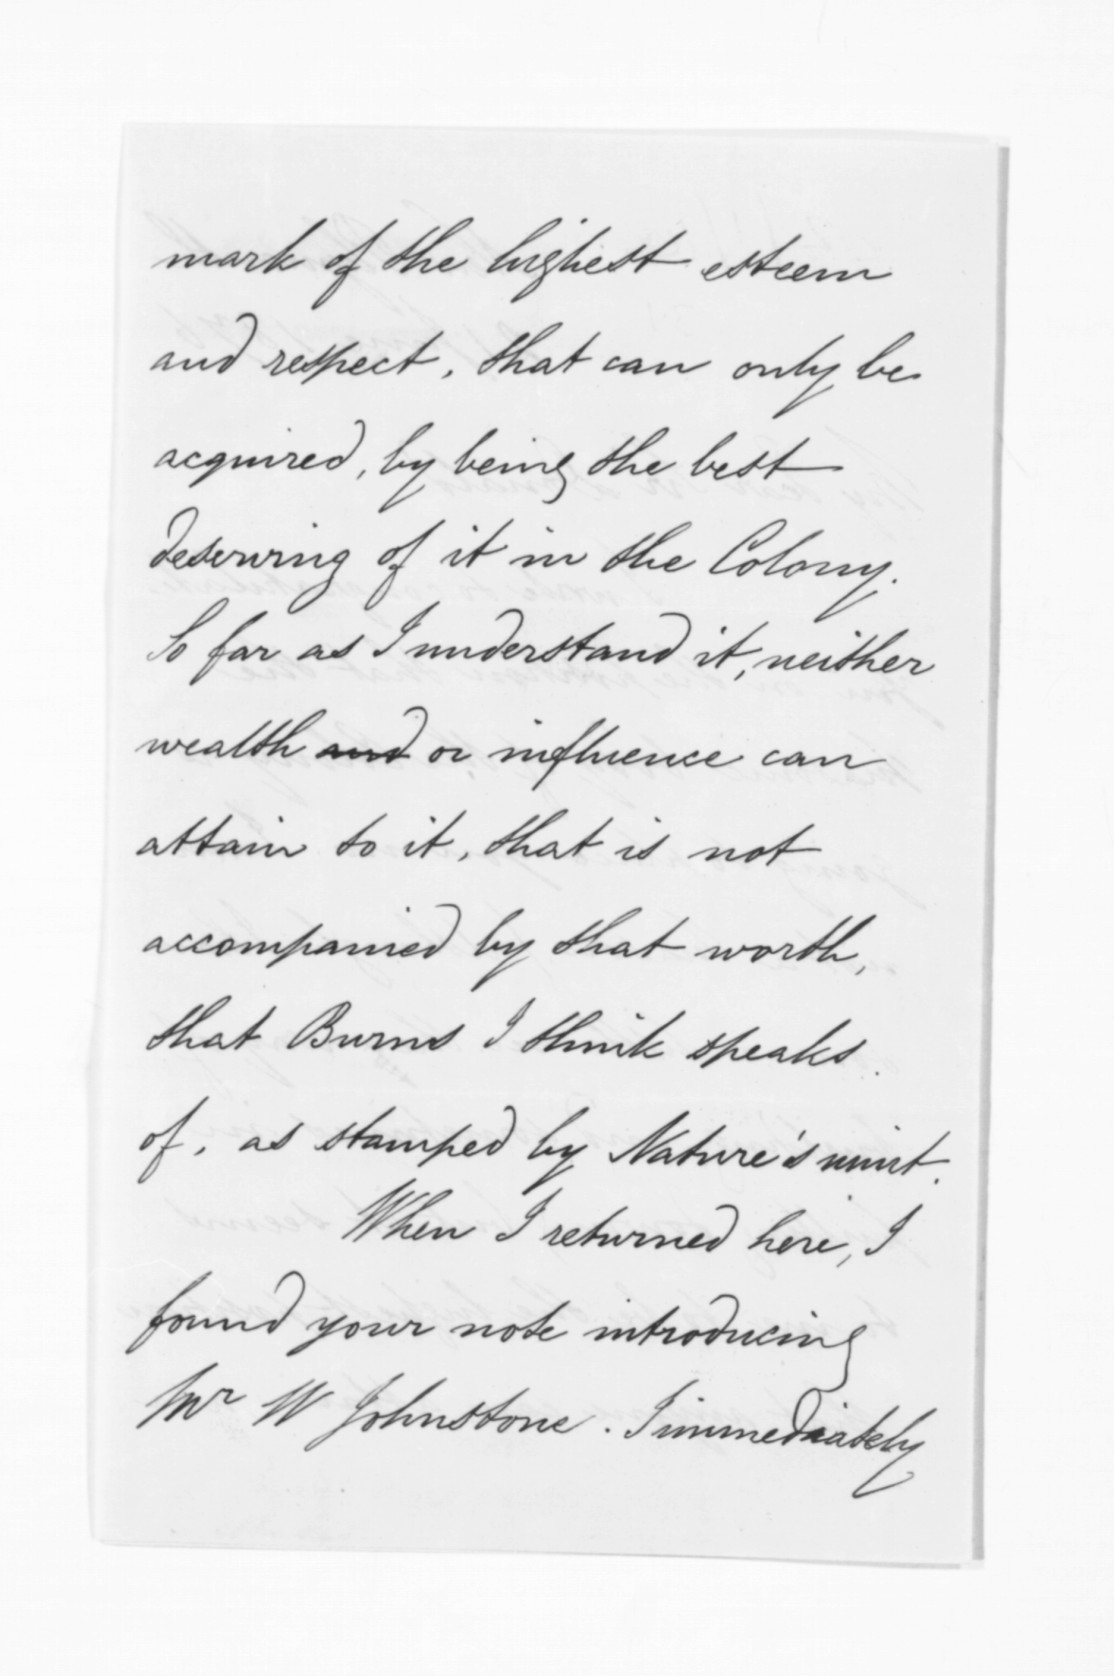 mark of the highest esteem
and respect, that can only be
acquired, by being the best
deserving of it in the Colony.
So far as I understand it, neither
wealth and or influence can
attain to it, that is not
accompanied by that worth,
that Burns I think speaks
of, as stamped by Nature's mint.
When I returned here, I
found your note introducing
Mr W Johnstone. I immediately